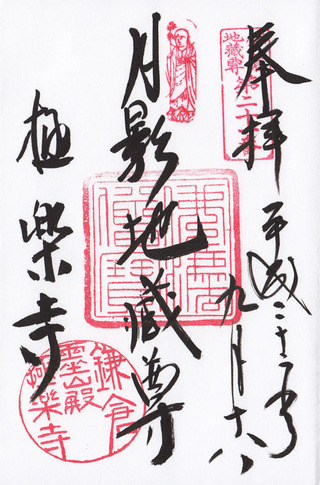 奉拝
平成二十二年
九月十八
月影地蔵尊
極楽寺
地蔵尊第二十
鎌倉
霊山殿
極楽寺